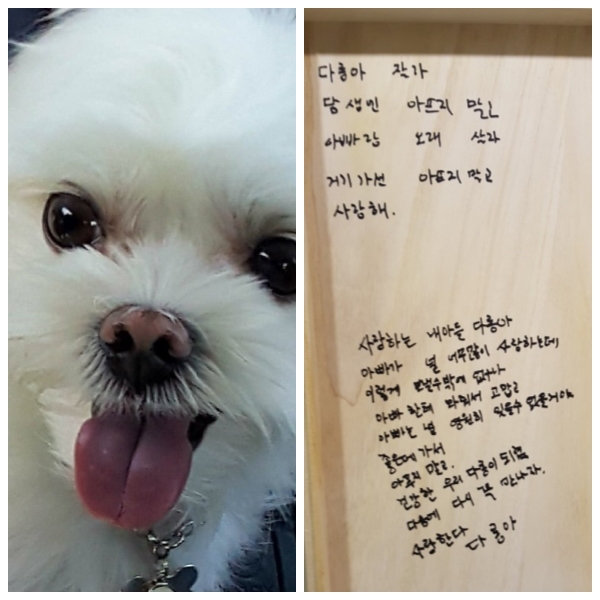 다롱아 작가
담 생빈 아프지 말고
아빠랑 오래 살라
거기 가선 아프지 막고
사랑해.
사랑하는 내아들 다롱아
아빠가 널 너무많이 사랑하는데
이렇게 보낼수밖에 없어나
아빠 한테 와줘서 고맙고
아빠는 널 영원히 잊을수 없을거야
좋은데 가서
아프지 말고.
건강한 우리 다롱이 되
다음에 다시 꼭 만나자.
사랑한다 다롱아